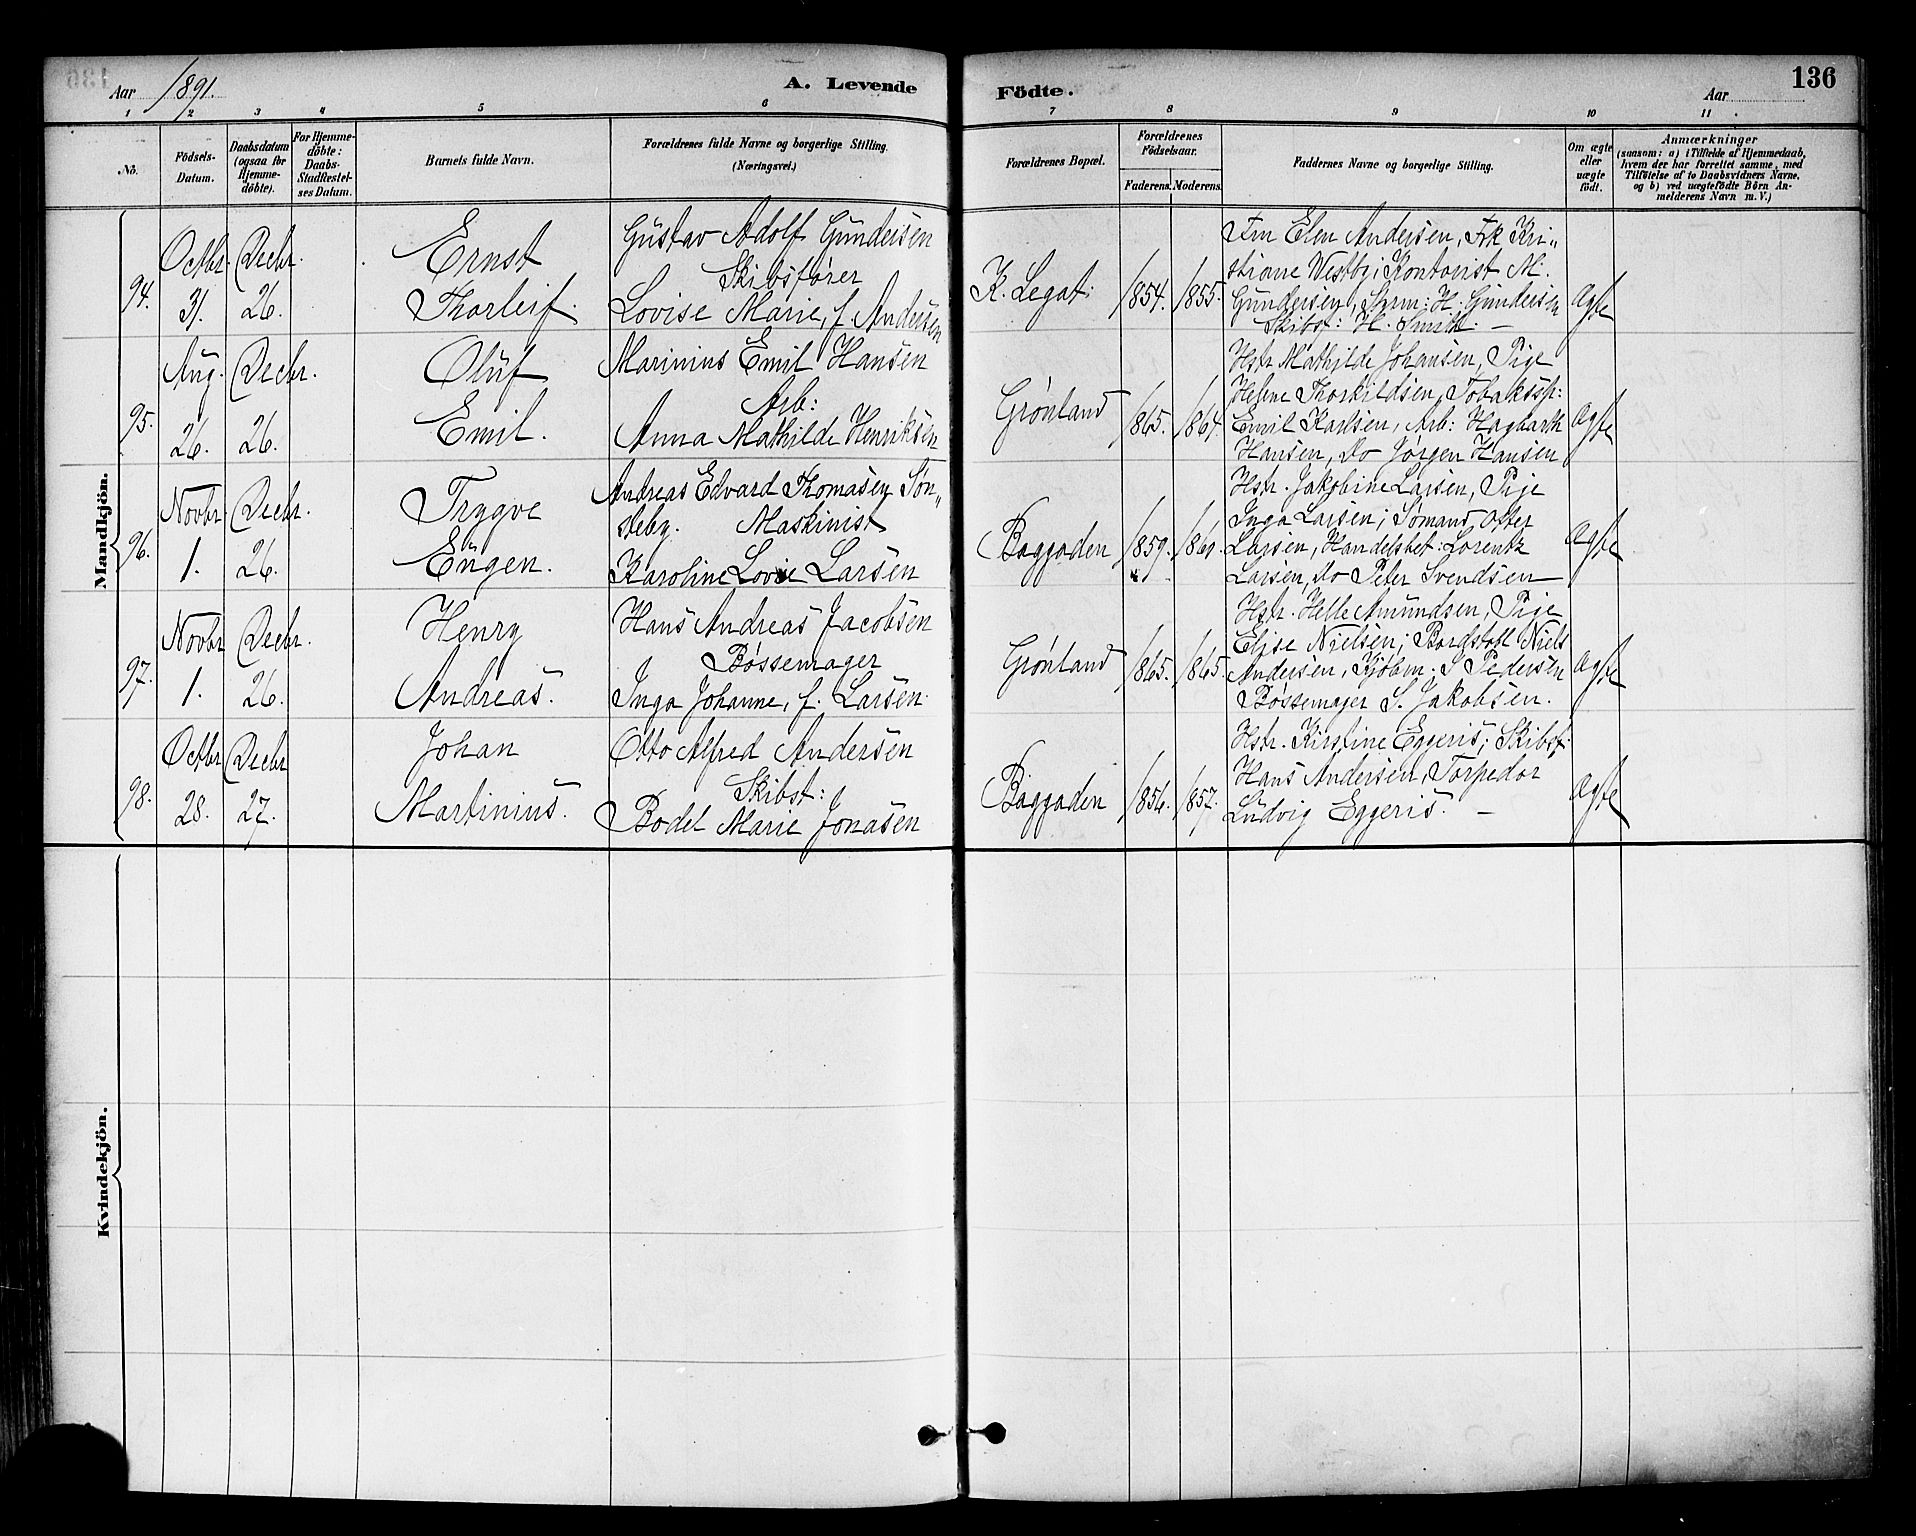 Aar 1891.
A. Levende
Födte.
136
Aar
1 2 3 4 5 6 7 8 9 10 11
No.
Födsels-Datum.
Daabsdatum (ogsaa for Hjemmedöbte).
For Hjemmedöbte: Daabs-Stadfæstelses Datum.
Barnets fulde Navn.
Forældrenes fulde Navne og borgerlige Stilling.
(Næringsvei.)
Forældrenes Bopæl.
Forældrenes Födselsaar.
Faderens. Moderens.
Faddernes Navne og borgerlige Stilling.
Om ægte eller uægte födt.
Anmærkninger
(saasom: a) i Tilfælde af Hjemmedaab,
hvem der har forrettet samme, med
Tilföielse af to Daabsvidners Navne,
og b) ved uægtefödte Börn An-
melderens Navn m. V.)
Mandkjön.
94.
Octbr. 31.
Decbr. 26.
Ernst
Thorleif.
Gustav Adolf Gundersen
Skibsfører
Lovise Marie, f. Andersen
K. Legat.
1854. 1855.
Fru Elen Andersen, Frk Kri„
stiane Vestby; Kontorist M.
Gundersen, H. Gundersen
Skibst: H. Smith. —
Ægte
95.
Aug. 26.
Decbr. 26.
Oluf
Emil.
Marinius Emil Hansen
Arb:
Anna Mathilde Henriksen
Grønland
1865. 1864.
Hstr Mathilde Johansen, Pige
Helene Thorkildsen, Tobakssp:
Emil Karlsen, Arb: Hagbarth
Hansen, Do Jørgen Hansen
Ægte
96.
Novbr 1.
Decbr. 26.
Trygve
Eugen.
Andreas Edvard Thomasen Søn„
steby. Maskinist
Karoline Lovise Larsen
Baggaden
1859. 1861.
Hstr. Jakobine Larsen, Pige
Inga Larsen; Sømand
Larsen, Handelsbet: Lorentz
Larsen, Do Peter Svendsen
Ægte
97.
Novbr 1.
Decbr. 26.
Henry
Andreas.
Hans Andreas Jacobsen
Bøssemager
Inga Johanne, f. Larsen.
Grønland
1865. 1865.
Hstr. Helle Amundsen, Pige
Elise Nielsen; Niels
Andersen, Kjøbm. S Pedersen
Bøssemager S. Jakobsen.
Ægte
98.
Octbr 28.
Decbr 27.
Johan
Martinius.
Otto Alfred Andersen
Skibst:
Bodel Marie Jonasen
Baggaden
1856. 1857.
Hstr. Kirstine Eggeris; Skibst:
Hans Andersen, Torpedor
Ludvig Eggeris. —
Ægte
Kvindekjön.